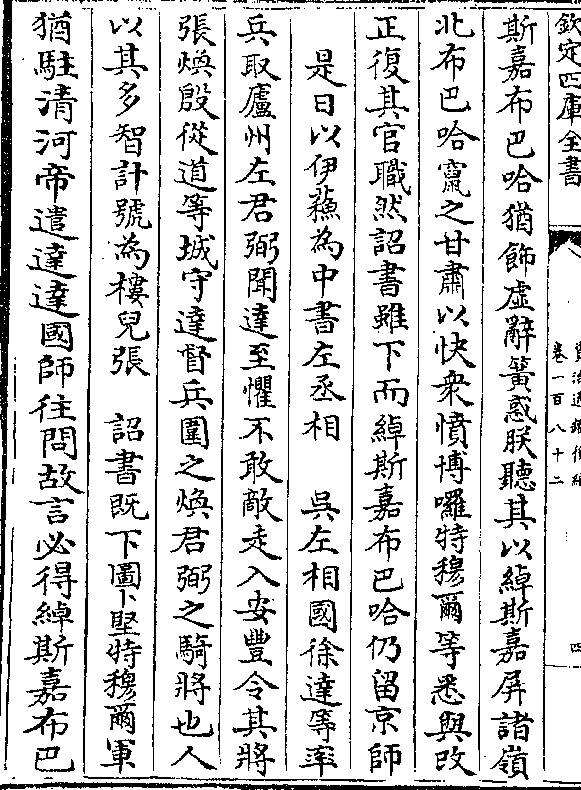 欽定四庫全書
卷一百八十二
四
斯嘉布巴哈猶飾虛辭簧惑朕聽其以綽斯嘉屏諸嶺
北布巴哈竄之甘肅以快衆憤博囉特穆爾等悉與改
正復其官職然詔書雖下而綽斯嘉布巴哈仍留京師
是日以伊蘓為中書左丞相 吳左相國徐達等率
兵取廬州左君弼聞達至懼不敢敵走入安豐令其將
張煥殷從道等城守達督兵圍之煥君弼之騎將也人
以其多智計號為樓兒張 詔書既下圖卜堅特穆爾軍
猶駐清河帝遣達達國師往問故言必得綽斯嘉布巴